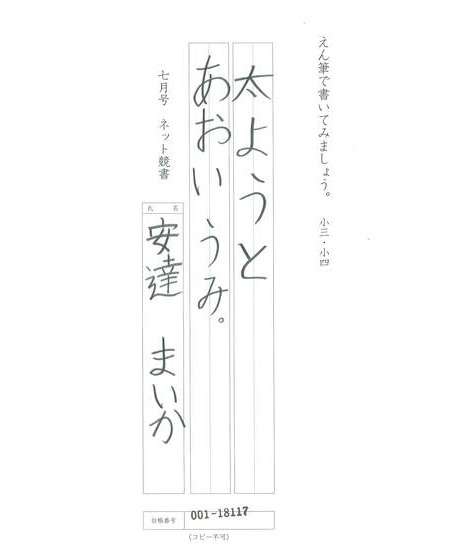 えん筆で書いてみましょう。 小三・小四
太ようと
あおいうみ。
七月号 ネット競書
氏名
安達 まいか
合格番号 001-18117
(コピー不可)